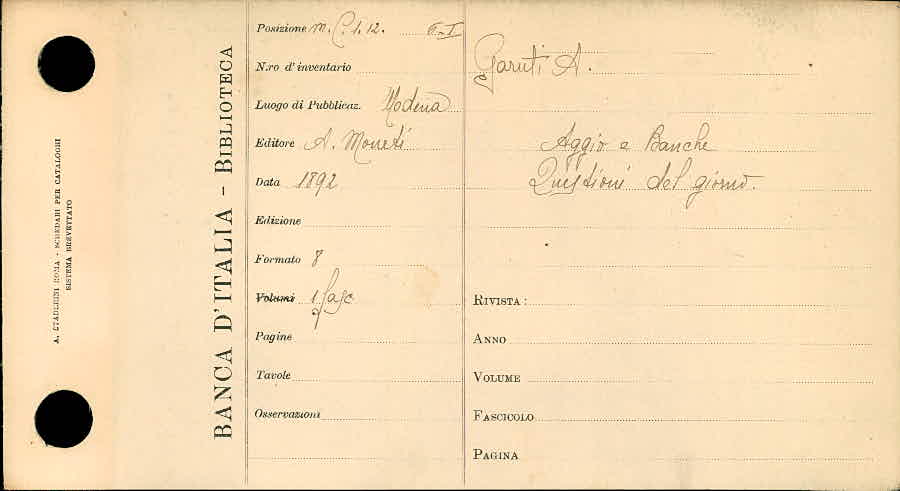 A. STADERINI ROMA - SCHEDARI PER CATALOGHI
SISTEMA BREVETTATO
BANCA D'ITALIA - BIBLIOTECA
Posizione m. C. 1. 12. F-I
N.ro d'inventario
Luogo di Pubblicaz. Modena
Editore A. Moneti
Data 1892
Edizione
Formato 8
Volumi 1 fasc
Pagine
Tavole
Osservazioni
Garuti A.
Aggio e Banche
Questioni del giorno.
RIVISTA :
ANNO
VOLUME
FASCICOLO
PAGINA